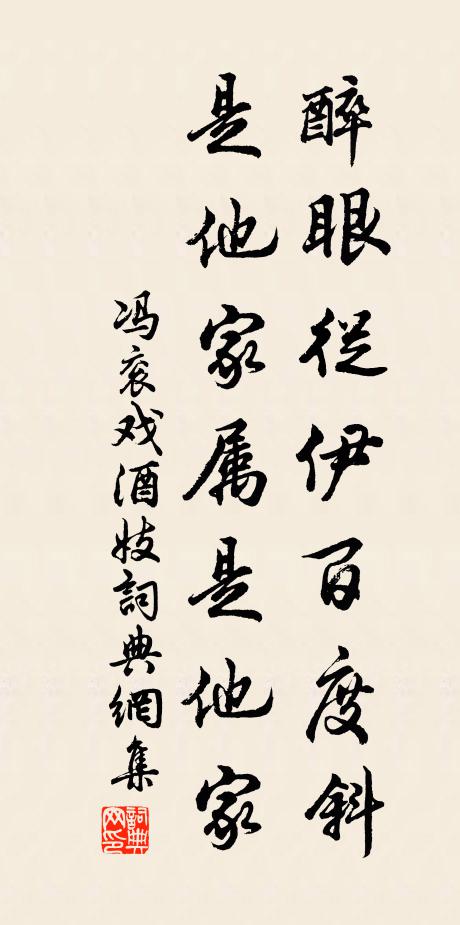 醉眼從伊百度斜
是他家属是他家
冯衮戏酒妓詞典網集
詞典网印